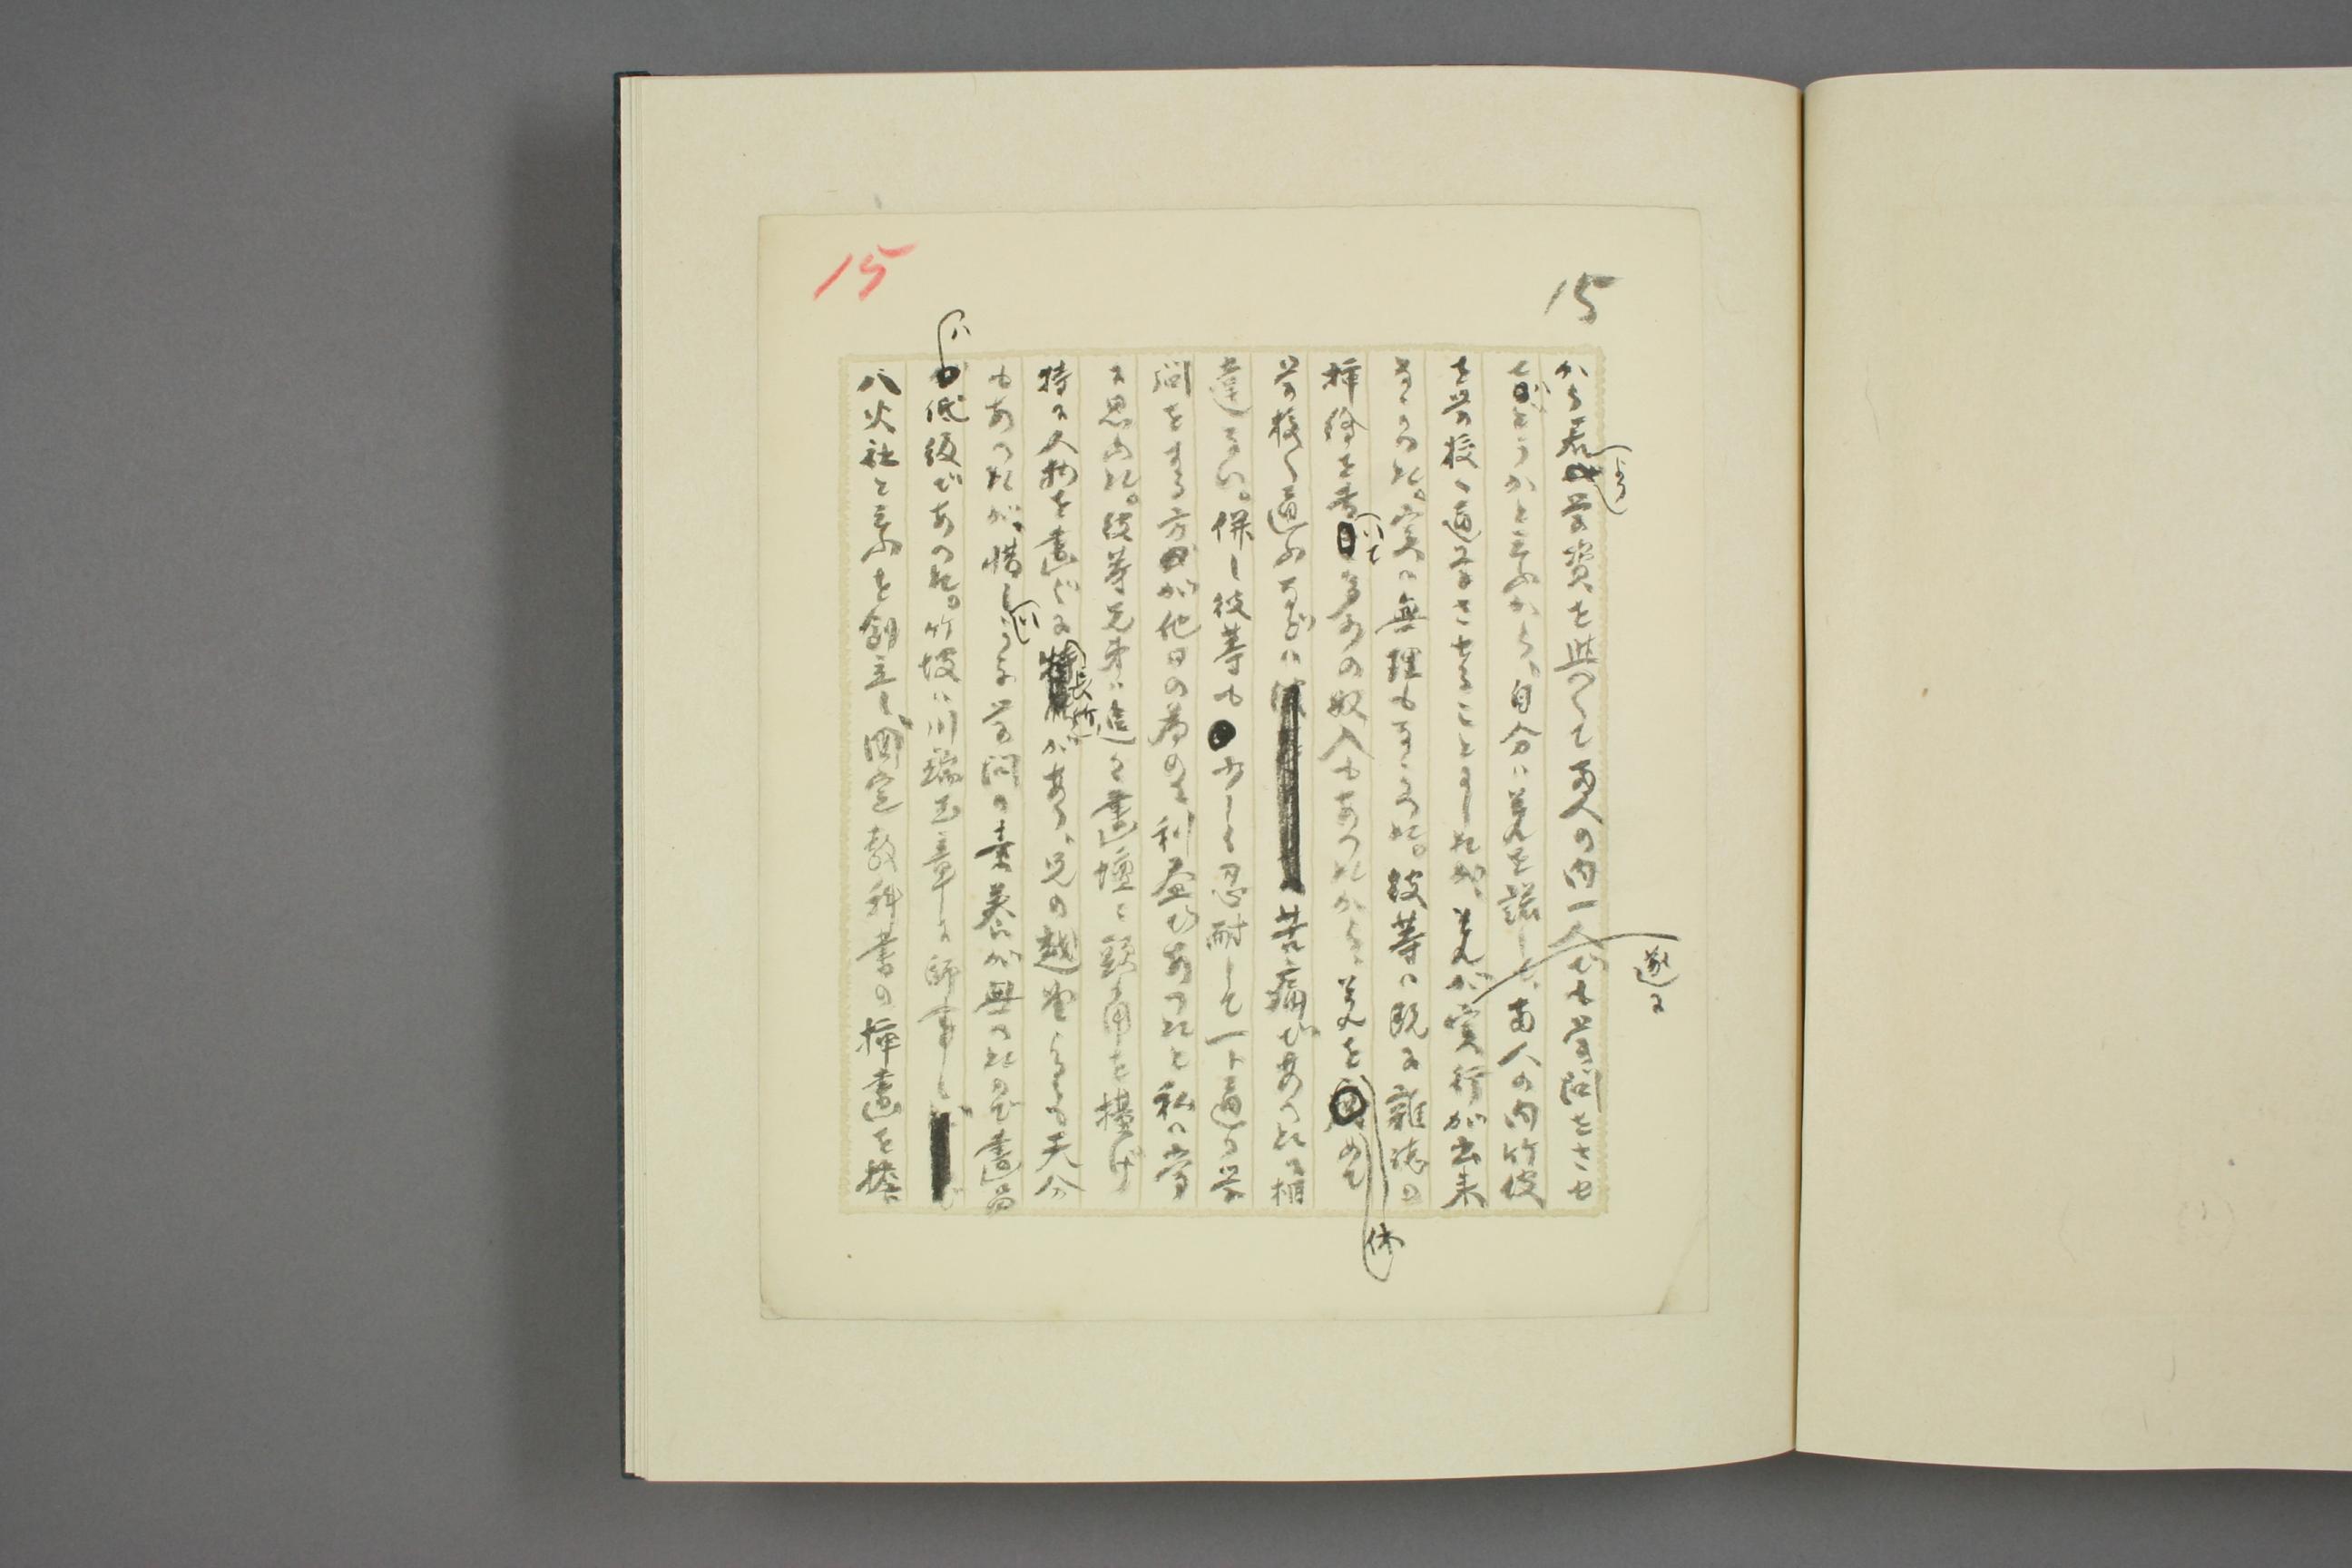 15
15
から若(よろし)学資を與へて両人の内一人でも学問をさせ
てはどうかと云ふから、自分は兄を諾して、両人の内竹坡
を学校へ通学させることにしたが、遂に実行が出来
なかつた。実に無理もなかつた。彼等は既に雑誌の
揷絵を書いて多少の収入もあつたから、それを休めて
学校へ通ふなどは苦痛であつたに相
違ない。併し彼等も少しく忍耐して一ト通り学
問をする方が他日の為めに利益であつたと私は常
に思ふた。彼等兄弟は追々画壇に頭角を擡げ
特に人物を画くに長所があり、兄の越堂よりも天分
もあつたが、惜しいかな学問の素養が無つたので画品
は低級であつた。竹坡は川端玉章に師事し
八火社と云ふを創立し、国定教科書の揷画を揮